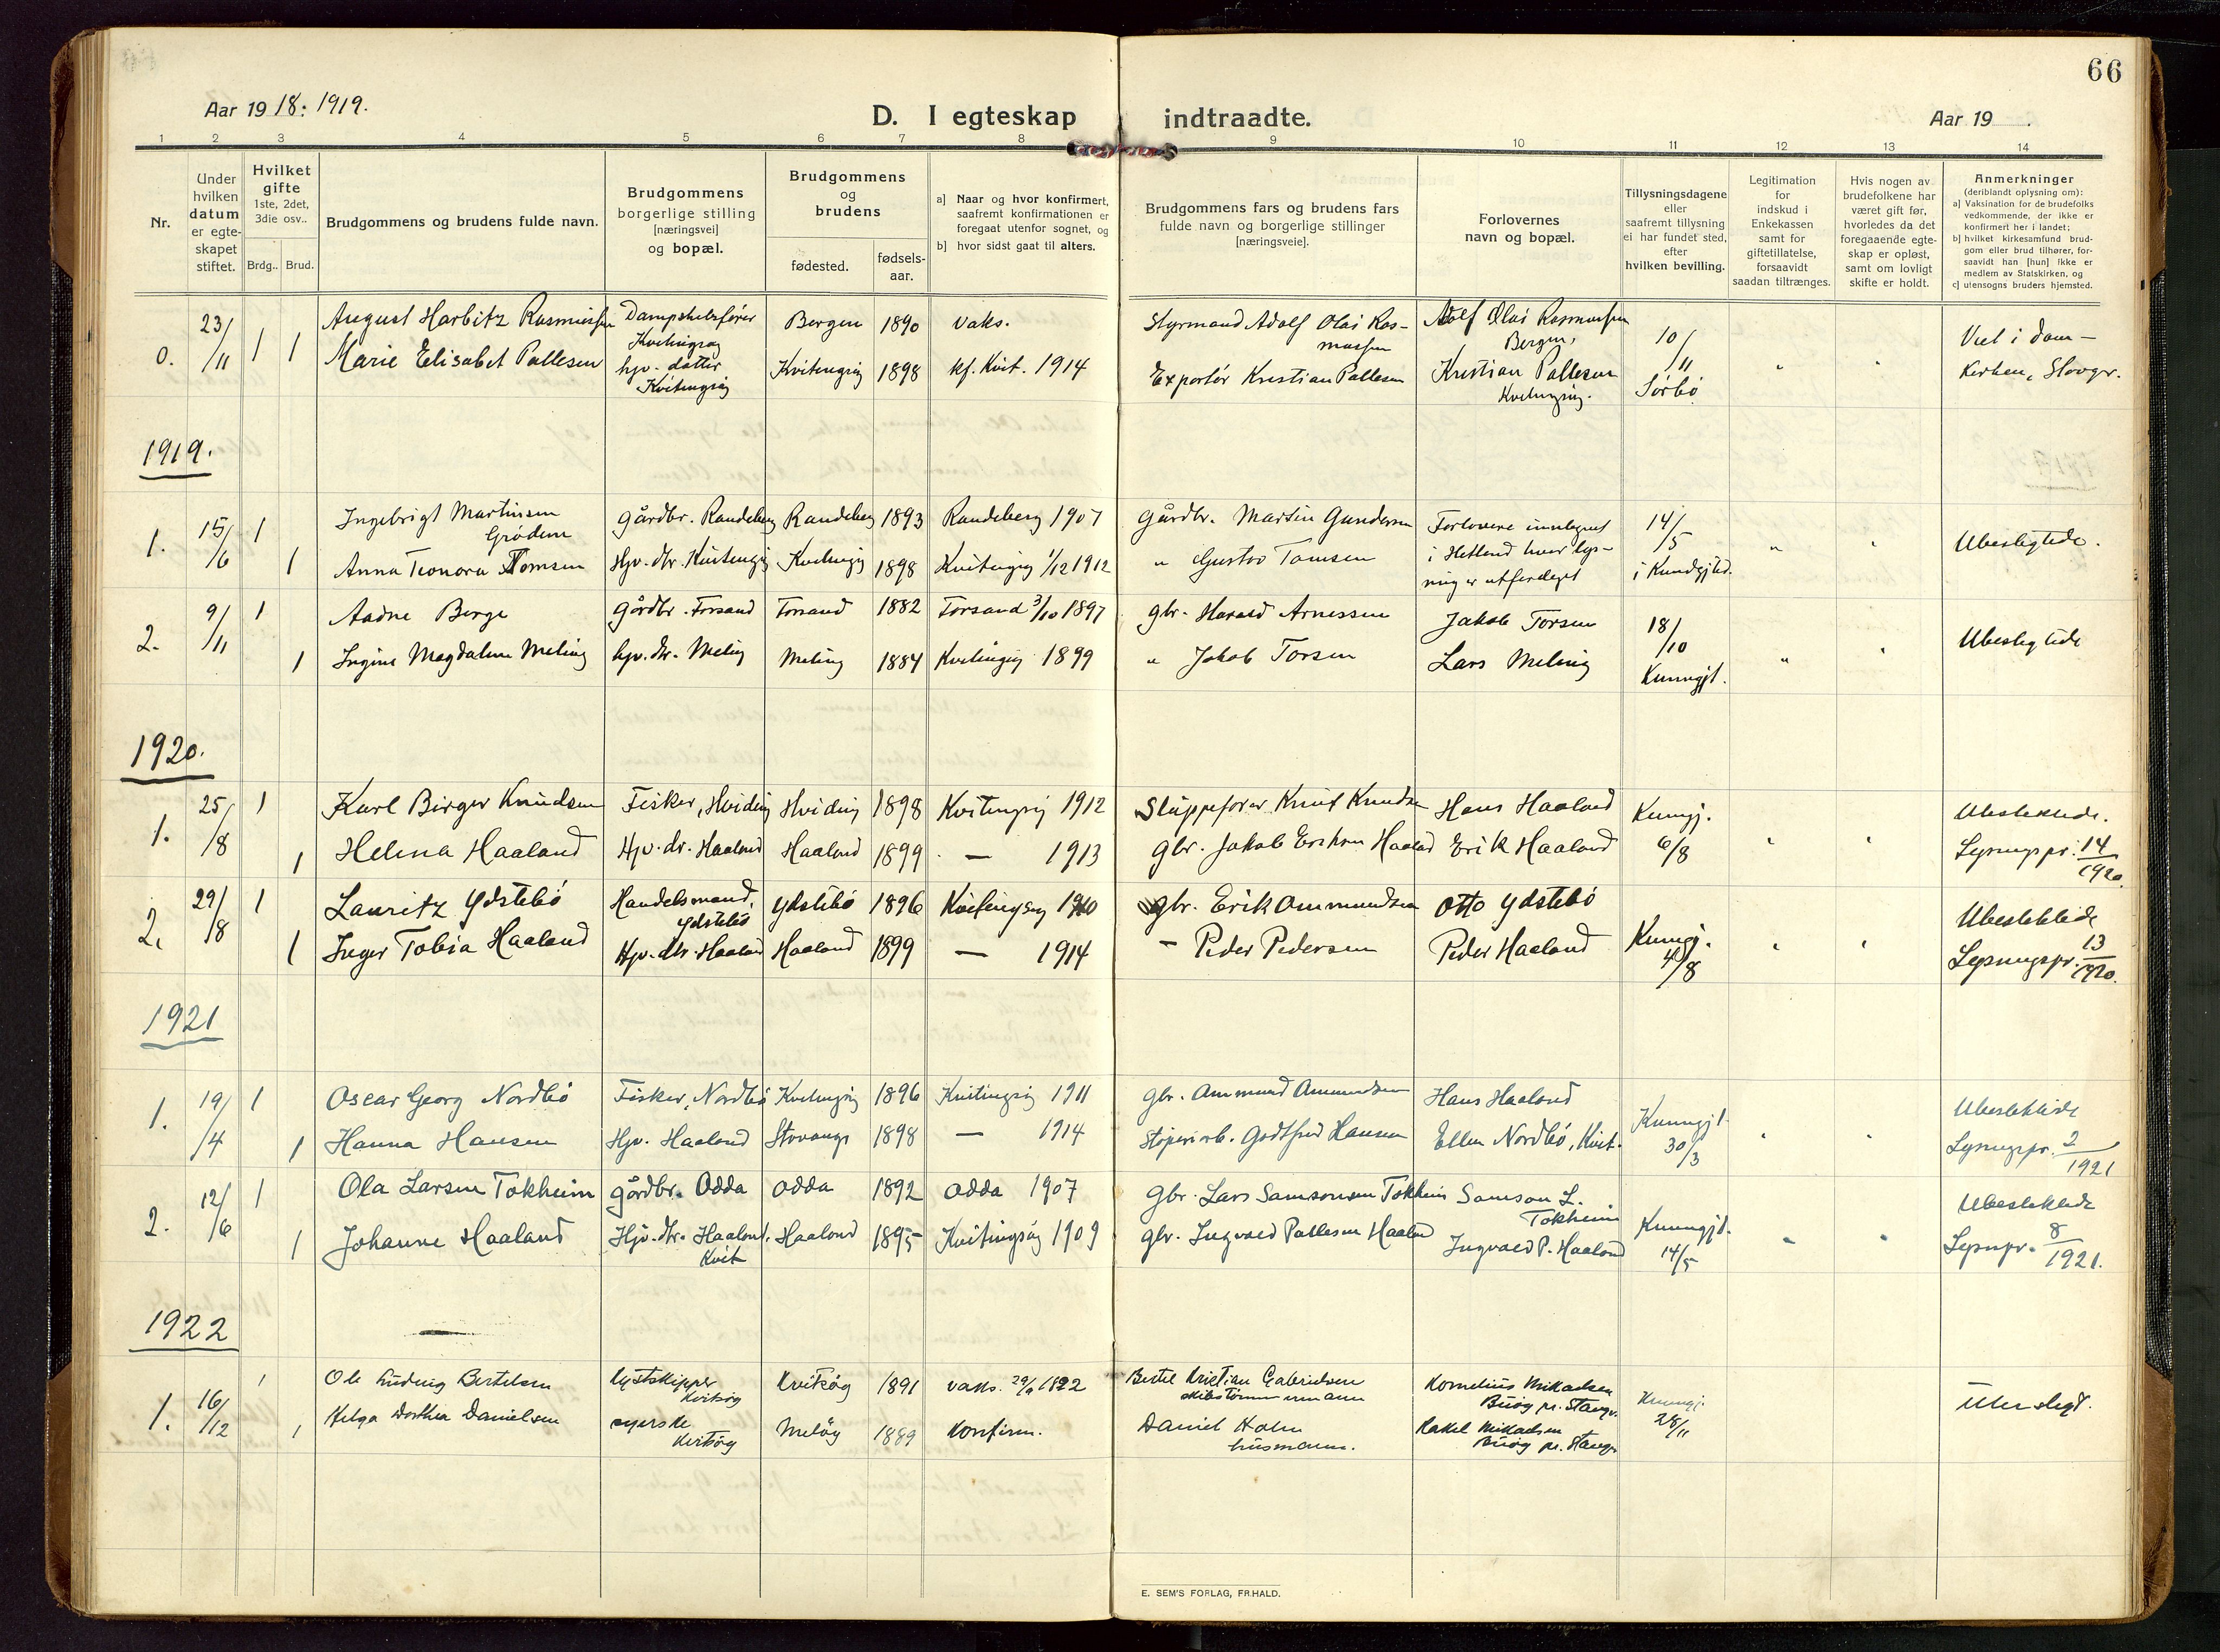 66
Aar 19 18: 1919.
D. I egteskap indtraadte.
Aar 19 .
1 2 3 4 5 6 7 8 9 10 11 12 13 14
Nr.
Under
hvilken
datum
er egte-
skapet
stiftet.
Hvilket
gifte
1ste, 2det,
3die osv..
Brdg.. Brud.
Brudgommens og brudens fulde navn.
Brudgommens
borgerlige stilling
[næringsvei]
og bopæl.
Brudgommens
og
brudens
fødested.
fødsels-
aar.
a] Naar og hvor konfirmert,
saafremt konfirmationen er
foregaat utenfor sognet, og
b] hvor sidst gaat til alters.
Brudgommens fars og brudens fars
fulde navn og borgerlige stillinger
[næringsveie].
Forlovernes
navn og bopæl.
Tillysningsdagene
eller
saafremt tillysning
ei har fundet sted,
efter
hvilken bevilling.
Legitimation
for
indskud i
Enkekassen
samt for
giftetillatelse,
forsaavidt
saadan tiltrænges.
Hvis nogen av
brudefolkene har
været gift før,
hvorledes da det
foregaaende egte-
skap er opløst,
samt om lovligt
skifte er holdt.
Anmerkninger
(deriblandt oplysning om):
a] Vaksination for de brudefolks
vedkommende, der ikke er
konfirmert her i landet;
b] hvilket kirkesamfund brud-
gom eller brud tilhører, for-
saavidt han [hun] ikke er
medlem av Statskirken, og
c] utensogns bruders hjemsted.
0. 23/11 1 August Harbitz Rasmussen Dampskibsfører Bergen 1890 vaks. Styrmand Adolf Olai Ras-
massen Adolf Olai Rasmussen
Bergen, 10/11 Viet i Dom-
1 Marie Elisabet Pallesen hjv. datter
Kvitingsøy Kvitingsøy 1898 kf. Kvit. 1914 Exportør Kristian Pallesen Kristian Pallesen
Kvitingsøy. Sørbø kirken, Stavgr.
1919.
1. 15/6 1 Ingebrigt Martinsen
Grødem Gårdbr. Randeberg Randeberg 1893 Randeberg 1907 Gårdbr. Martin Gundersen Forlovere 14/5 " " Ubeslegtede.
1 Anna Tomsen Hjv. dtr. Kvitingsøy Kvitingsøy 1898 Kvitingsøy 1/12 1912 " Gustav Tomsen i Hetland hvor lys-
ning er utferdiget i Kundgjted.
2. 9/11 1 Aadne Berge Gårdbr. Forsand Forsand 1882 Forsand 3/10 1897 gbr. Harald Arnessen Jakob Torsen 18/10 Ubeslegtede
1 Ingine Magdalene Meling hjv. dtr. Meling Meling 1884 Kvitingsøy 1899 " Jakob Torsen Lars Meling Kunngjt. "
1920.
1. 25/8 1 Karl Birger Knudsen Fisker, Hviding Hviding 1898 Kvitingsøy 1912 Sluppefører Knut Knudsen Hans Haaland Kunngj. Ubeslektede.
1 Helena Haaland Hjv. dr. Haaland Haaland 1899 — 1913 gbr. Jakob Eriksen Haaland Erik Haaland 6/8 Lysningspr. 14/1920.
2. 29/8 1 Lauritz Ydstebö Handelsmand,
Ydstebö Ydstebö 1896 Kvitingsøy 1910 gbr. Erik Ommundsen Otto Ydstebö Ubeslektede
1 Inger Tobia Haaland Hjv. dtr. Haaland Haaland 1899 — 1914 — Peder Pedersen Peder Haaland Kunngj. 4/8 Lysningspr. 13/1920.
1921
1. 19/4 1 Oscar Georg Nordbö Fisker, Nordbö Kvitingsøy 1896 Kvitingsøy 1911 gbr. Ommund Ommundsen Hans Haaland Kunngjt. Ubeslektede
1 Hanna Hansen Hjv. Haaland Stavanger 1898 — 1914 Støperiarb. Godtfred Hansen Ellen Nordbö, Kvit. 30/3 Lysningspr. 2/1921
2. 12/6 1 Ola Larsen Tokheim gårdbr. Odda Odda 1892 Odda 1907 Gbr. Lars Samsonsen Tokheim Samson L.
Tokheim Kunngjt. Ubeslektede
1 Johanne Haaland Hjv. dtr. Haaland.
Kvit Haaland 1895 Kvitingsøy 1909 gbr. Ingvald Pallesen Haaland Ingvald P. Haaland 14/5 Lysnpr. 8/1921.
1922
1. 16/12 1 Ole Ludvig Bertelsen
Kvitsøg Kvitsøg 1891 vaks. Bertel Kristian Gabrielsen
skibstømmermann Kornelius Mikaelsen
Buøg pr. Stavgr. Kunngj.
1 Helga Dorthea Danielsen syerske
Kvitsøg Meløy 1889 konfirm. Daniel Holm
husmann. Rakel Mikaelsen
Buøg pr. Stavgr 28/11
E. SEM'S FORLAG, FR.HALD.